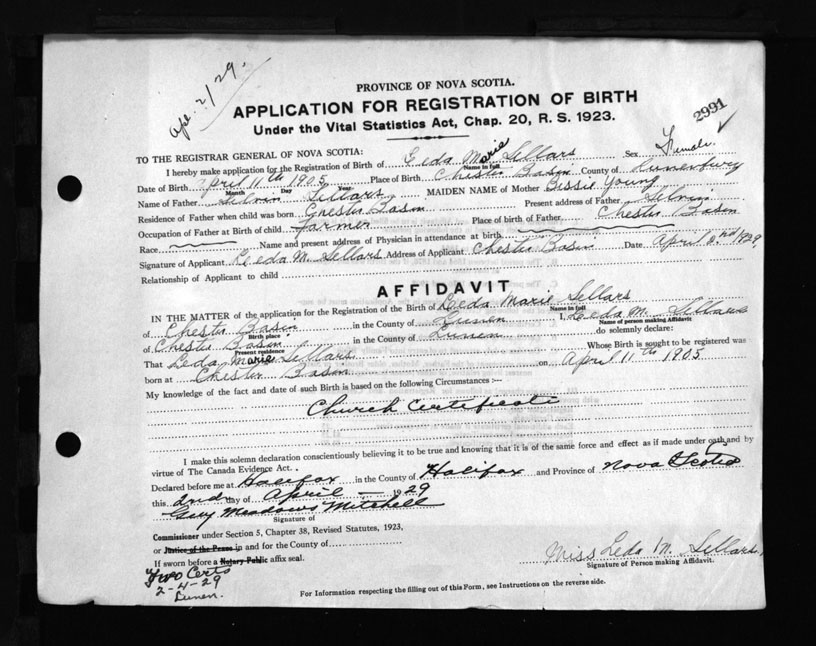 Apl. 2/29.
PROVINCE OF NOVA SCOTIA.
APPLICATION FOR REGISTRATION OF BIRTH
2991
Under the Vital Statistics Act, Chap. 20, R. S. 1923.
TO THE REGISTRAR GENERAL OF NOVA SCOTIA:
I hereby make application for the Registration of Birth of Leda Marie Sellars Sex Female
Name in full
Date of Birth April 11th 1905 Place of Birth Chester Basin County of
Month Day Year
Name of Father Sellars MAIDEN NAME of Mother Bessie Young
Residence of Father when child was born Chester Basin Present address of Father
Occupation of Father at Birth of child. Farmer Place of birth of Father Chester Basin
Race Name and present address of Physician in attendance at birth.
Signature of Applicant Leda M. Sellars Address of Applicant Chester Basin Date April 2nd 1929
Relationship of Applicant to child
AFFIDAVIT
IN THE MATTER of the application for the Registration of the Birth of Leda Marie Sellars
Name in full
of Chester Basin in the County of Lunen I, Leda M. Sellars
Birth place Name of person making Affidavit
of Chester Basin in the County of Lunen do solemnly declare:
Present residence
That Leda Marie Sellars Whose Birth is sought to be registered was
born at Chester Basin on April 11th 1905
My knowledge of the fact and date of such Birth is based on the following Circumstances :--
Church Certificate
I make this solemn declaration conscientiously believing it to be true and knowing that it is of the same force and effect as if made under oath and by
virtue of The Canada Evidence Act.
Declared before me at Halifax in the County of Halifax and Province of Nova Scotia
this 2nd day of April 1929
Guy Meadows Mitchell
Signature of
Commissioner under Section 5, Chapter 38, Revised Statutes, 1923,
or Justice of the Peace in and for the County of
If sworn before a Notary Public affix seal.
Miss Leda M. Sellars
Signature of Person making Affidavit.
Two Certs
2-4-29
Lunen.
For Information respecting the filling out of this Form, see Instructions on the reverse side.